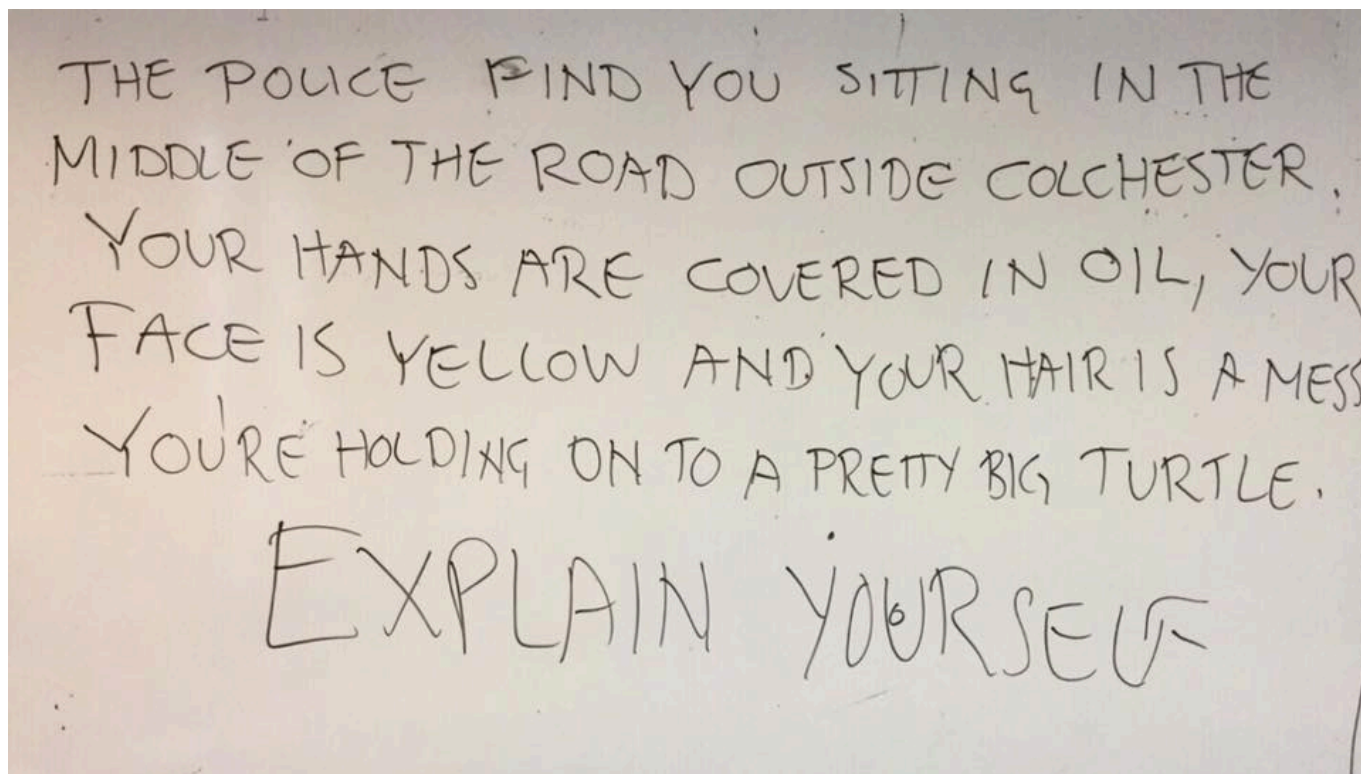 THE POLICE FIND YOU SITTING IN THE
MIDDLE OF THE ROAD OUTSIDE COLCHESTER.
YOUR HANDS ARE COVERED IN OIL, YOUR
FACE IS YELLOW AND YOUR HAIR IS A MESS
YOU'RE HOLDING ON TO A PRETTY BIG TURTLE.
EXPLAIN YOURSELF